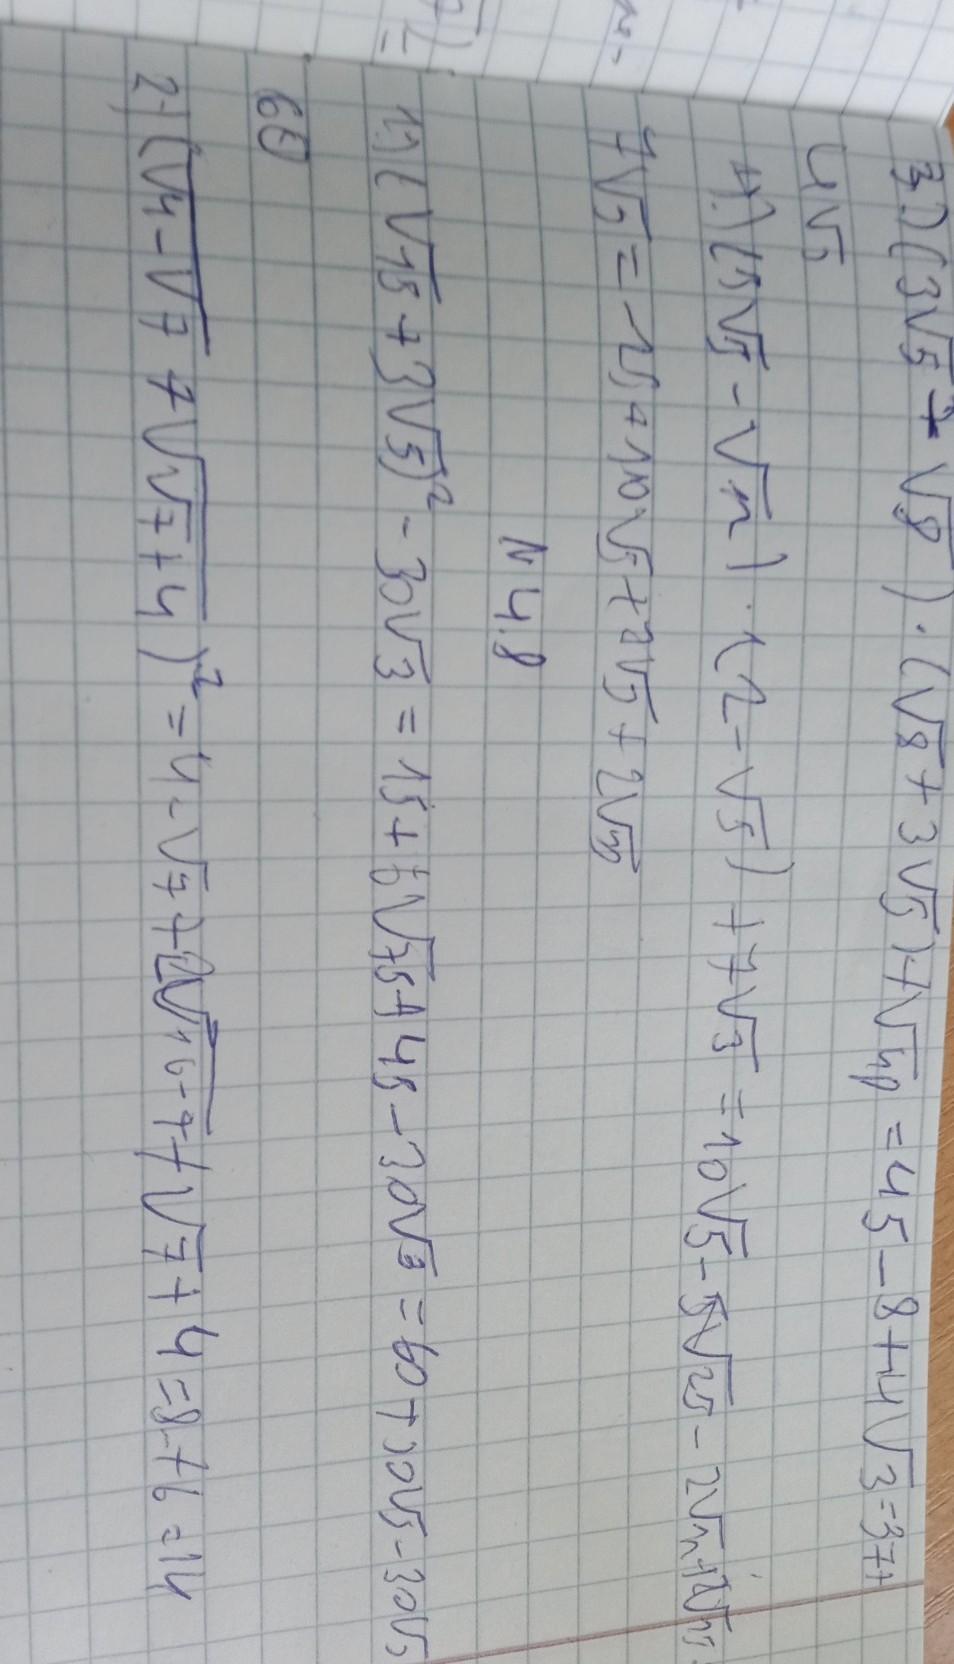 3.) (3√5 + √8) · (√8 + 3√5) + √48 = 45 - 8 + 4√3 = 37 +
4√3
4.) (5√5 - √11) · (2 - √5) + 7√3 = 10√5 - 5√25 - 2√11 +
7√3 = - 25 + 10√5 + 7√3 +
N 4.8
1.) (√15 + 3√5)² - 30√3 = 15 + 6√75 + 45 - 30√3 = 60 + 30√3 - 30√3
60
2.) (√4-√7 + √√7+4)² = 4 - √7 + 2√16-7 + √7 + 4 = 8 + 6 = 14